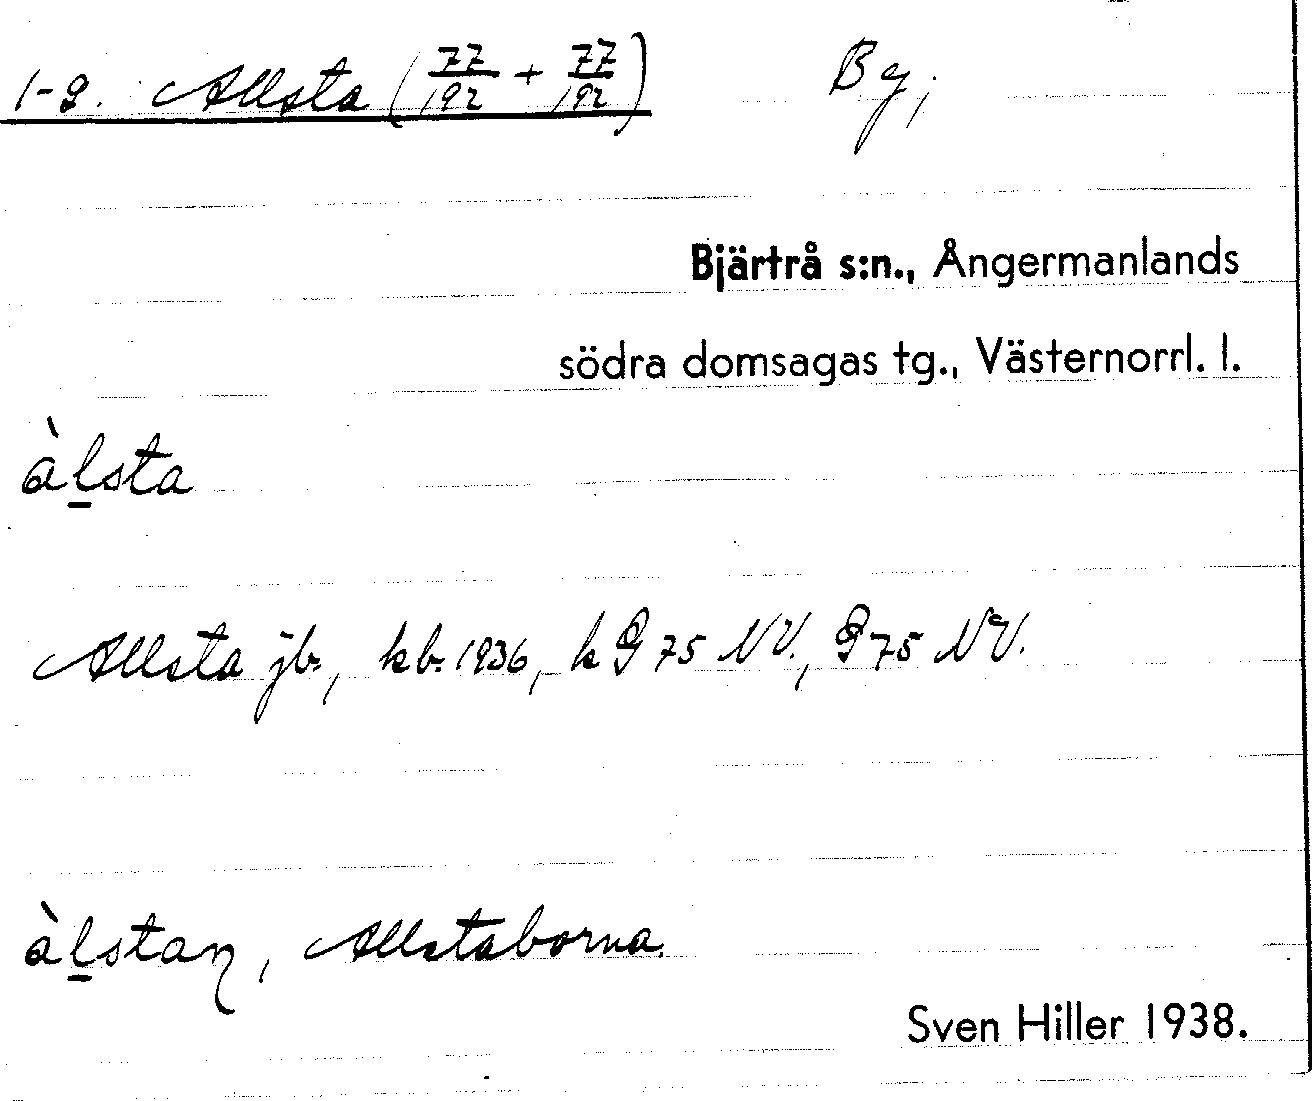 1-2. Allsta (77/192 + 77/192) By,
Bjärtrå s:n., Ångermanlands
södra domsagas tg., Västernorrl. l.
àl̲sta
Allsta jb., kb. 1936, k G 75 NV., G 75 NV.
àl̲staɳ, Allstaborna.
Sven Hiller 1938.